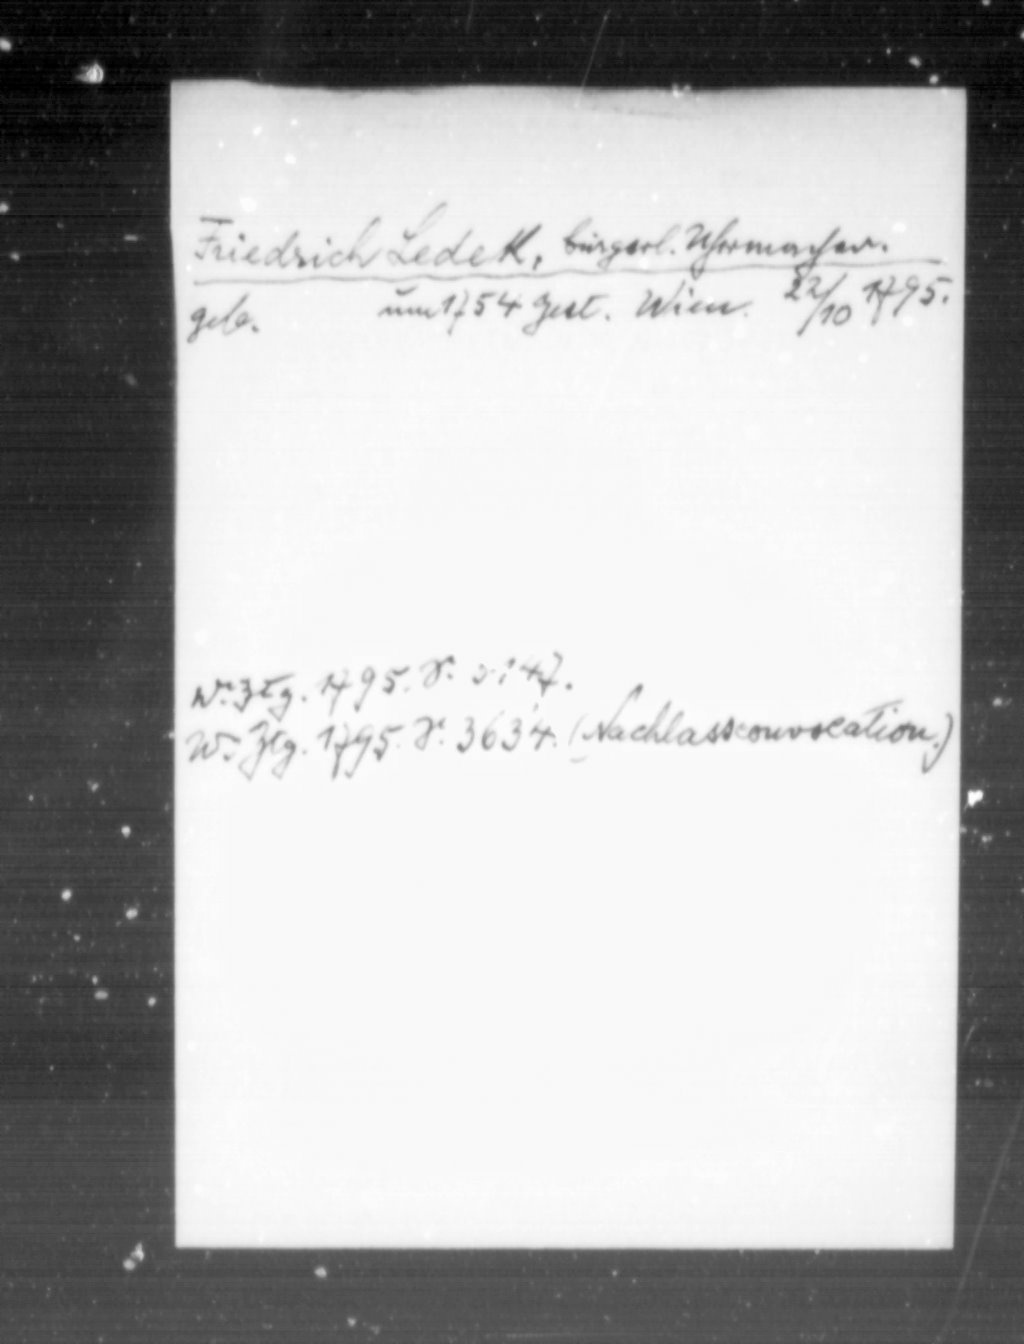 Friedrich Ledek, bürgerl. Uhrmacher.
geb. um 1754 gest. Wien. 22/10 1795.
W. Ztg. 1795. S. 3147.
W. Ztg. 1795. S. 3634. (Nachlassconvocation.)